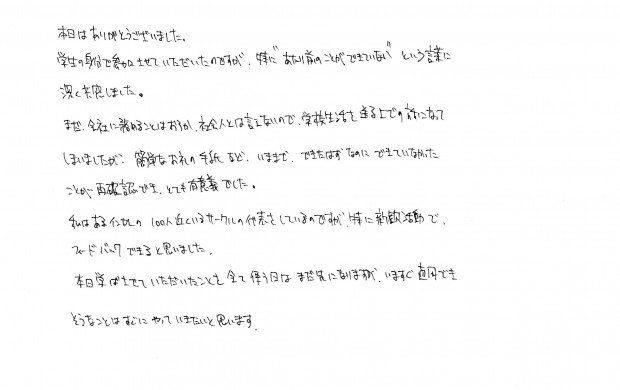 本日はありがとうございました。
学生の身分で参加させていただいたのですが、特に"あたり前のことができていない"という言葉に
深く共感しました。
まだ、会社に勤めることはおろか、社会人とは言えないので、学校生活を送る上での話になって
しまいましたが、簡単なお礼の手紙など、いままで、できたはずなのにできていなかった
ことが再確認でき、とても有意義でした。
私はある の100人近くいるサークルの代表をしているのですが、特に新歓活動で、
フィードバックできると思いました。
本日学ばせていただいたことを全て使う日はまだ先になりますが、いますぐ直用でき
そうなことはすぐにやっていきたいと思います。